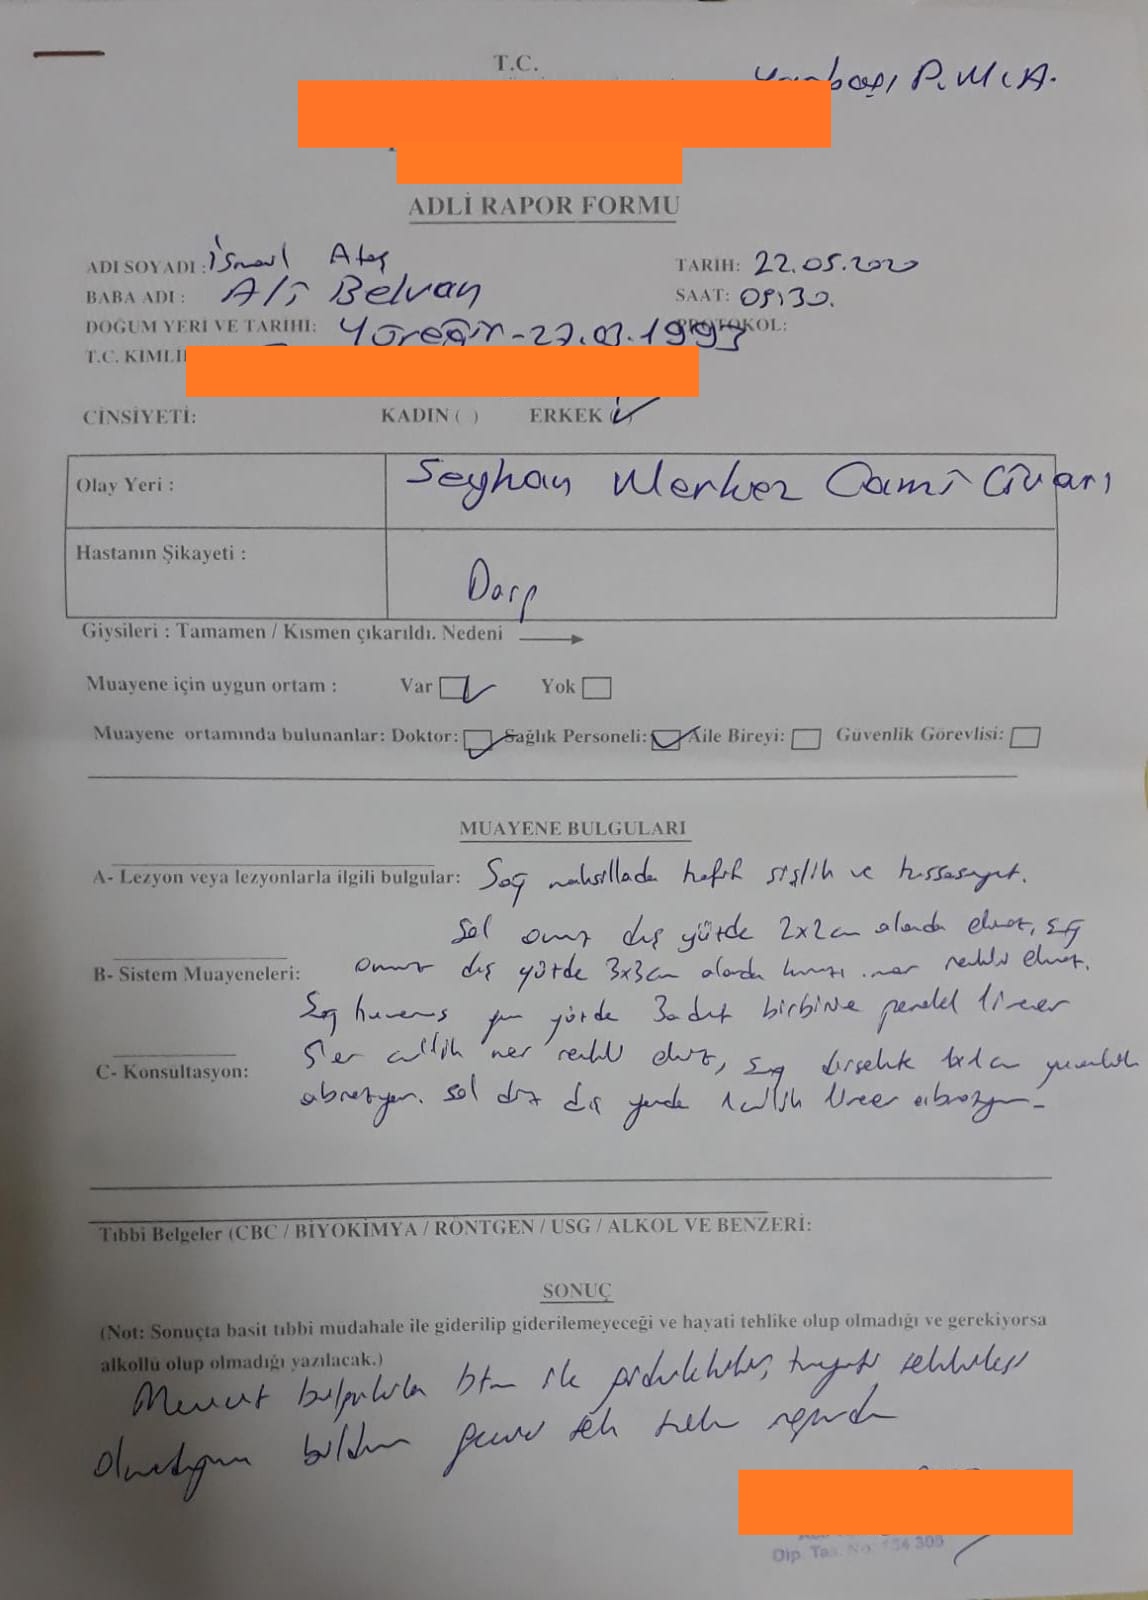 T.C.
P.M.A.
ADLİ RAPOR FORMU
ADI SOYADI : İsmail Ateş
TARİH: 22.05.2020
BABA ADI : Ali Belvan
SAAT: 09:30.
DOĞUM YERİ VE TARİHİ: Yüreğir - 27.03.1993
PROTOKOL:
T.C. KİMLİ
CİNSİYETİ: KADIN ( ) ERKEK ( )
Olay Yeri : Seyhan Merkez Cami Civarı
Hastanın Şikayeti : Darp
Giysileri : Tamamen / Kısmen çıkarıldı. Nedeni
Muayene için uygun ortam : Var Yok
Muayene ortamında bulunanlar: Doktor: Sağlık Personeli: Aile Bireyi: Güvenlik Görevlisi:
MUAYENE BULGULARI
A- Lezyon veya lezyonlarla ilgili bulgular: Sağ maksillada hafif şişlik ve hassasiyet.
Sol omuz dış yüzde 2x2 cm alanda ekimoz, sağ
B- Sistem Muayeneleri: omuz dış yüzde 3x3 cm alanda kırmızı mor renkli ekimoz.
Sağ humerus yüzde 3 adet birbirine paralel lineer
C- Konsultasyon: 5'er cm'lik mor renkli ekimoz, sağ dirsekte
abrazyon. Sol diz dış yanda 1 cm'lik lineer abrazyon
Tıbbi Belgeler (CBC / BİYOKİMYA / RÖNTGEN / USG / ALKOL VE BENZERİ:
SONUÇ
(Not: Sonuçta basit tıbbi müdahale ile giderilip giderilemeyeceği ve hayati tehlike olup olmadığı ve gerekiyorsa
alkollü olup olmadığı yazılacak.)
Mevcut bulgularla btm ile giderilebilir, hayati tehlikesi
olmadığını bildirir geçici raporudur
Dip. Tes. No: